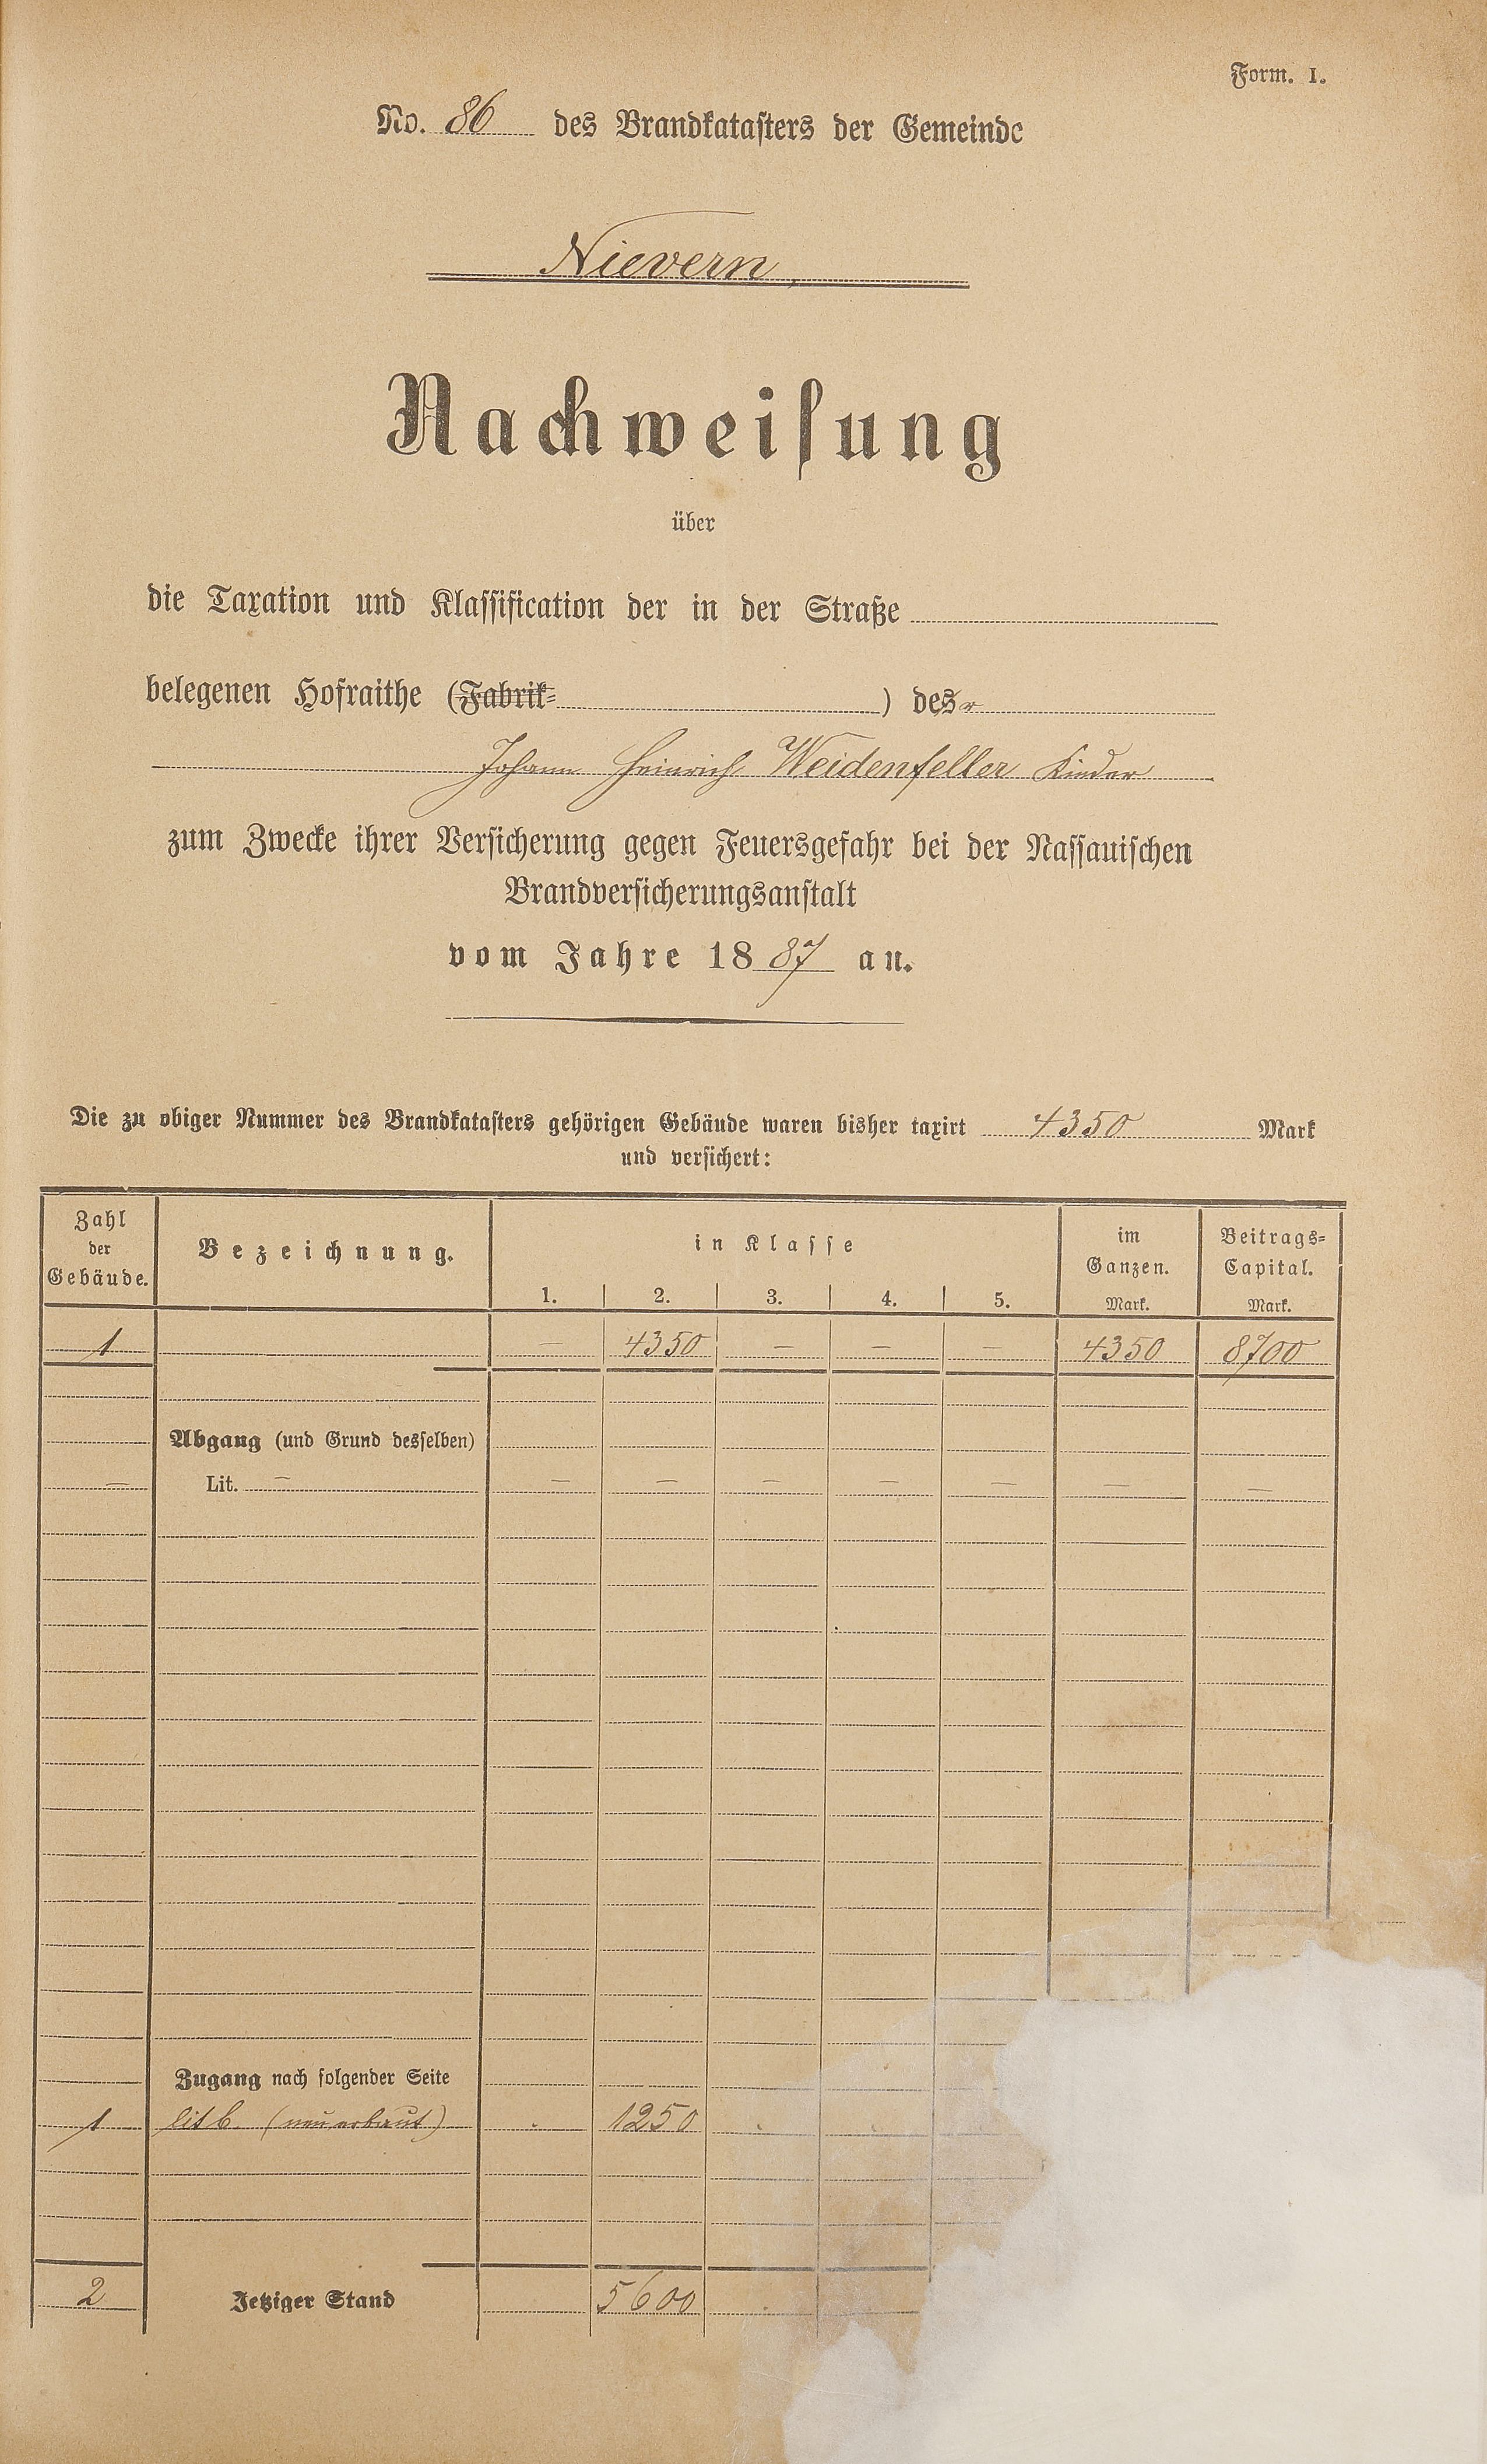 Form. I.
No. 86 des Brandkatasters der Gemeinde
Nievern
Nachweisung
über
die Taxation und Klassification der in der Straße
belegenen Hofraithe (Fabrik- ) des r
Johann Heinrich Weidenfeller Kinder
zum Zwecke ihrer Versicherung gegen Feuersgefahr bei der Nassauischen
Brandversicherungsanstalt
vom Jahre 1887 an.
Die zu obiger Nummer des Brandkatasters gehörigen Gebäude waren bisher taxirt 4350 Mark
und versichert:
Zahl der Gebäude. Bezeichnung. in Klasse im Ganzen. Beitrags-Capital.
1. 2. 3. 4. 5. Mark. Mark.
1 — 4350 — — — 4350 8700
Abgang (und Grund desselben)
— Lit. — — — — — — — —
Zugang nach folgender Seite
1 lit b. (neu erbaut) . 1250 . .
2 Jetziger Stand 5600